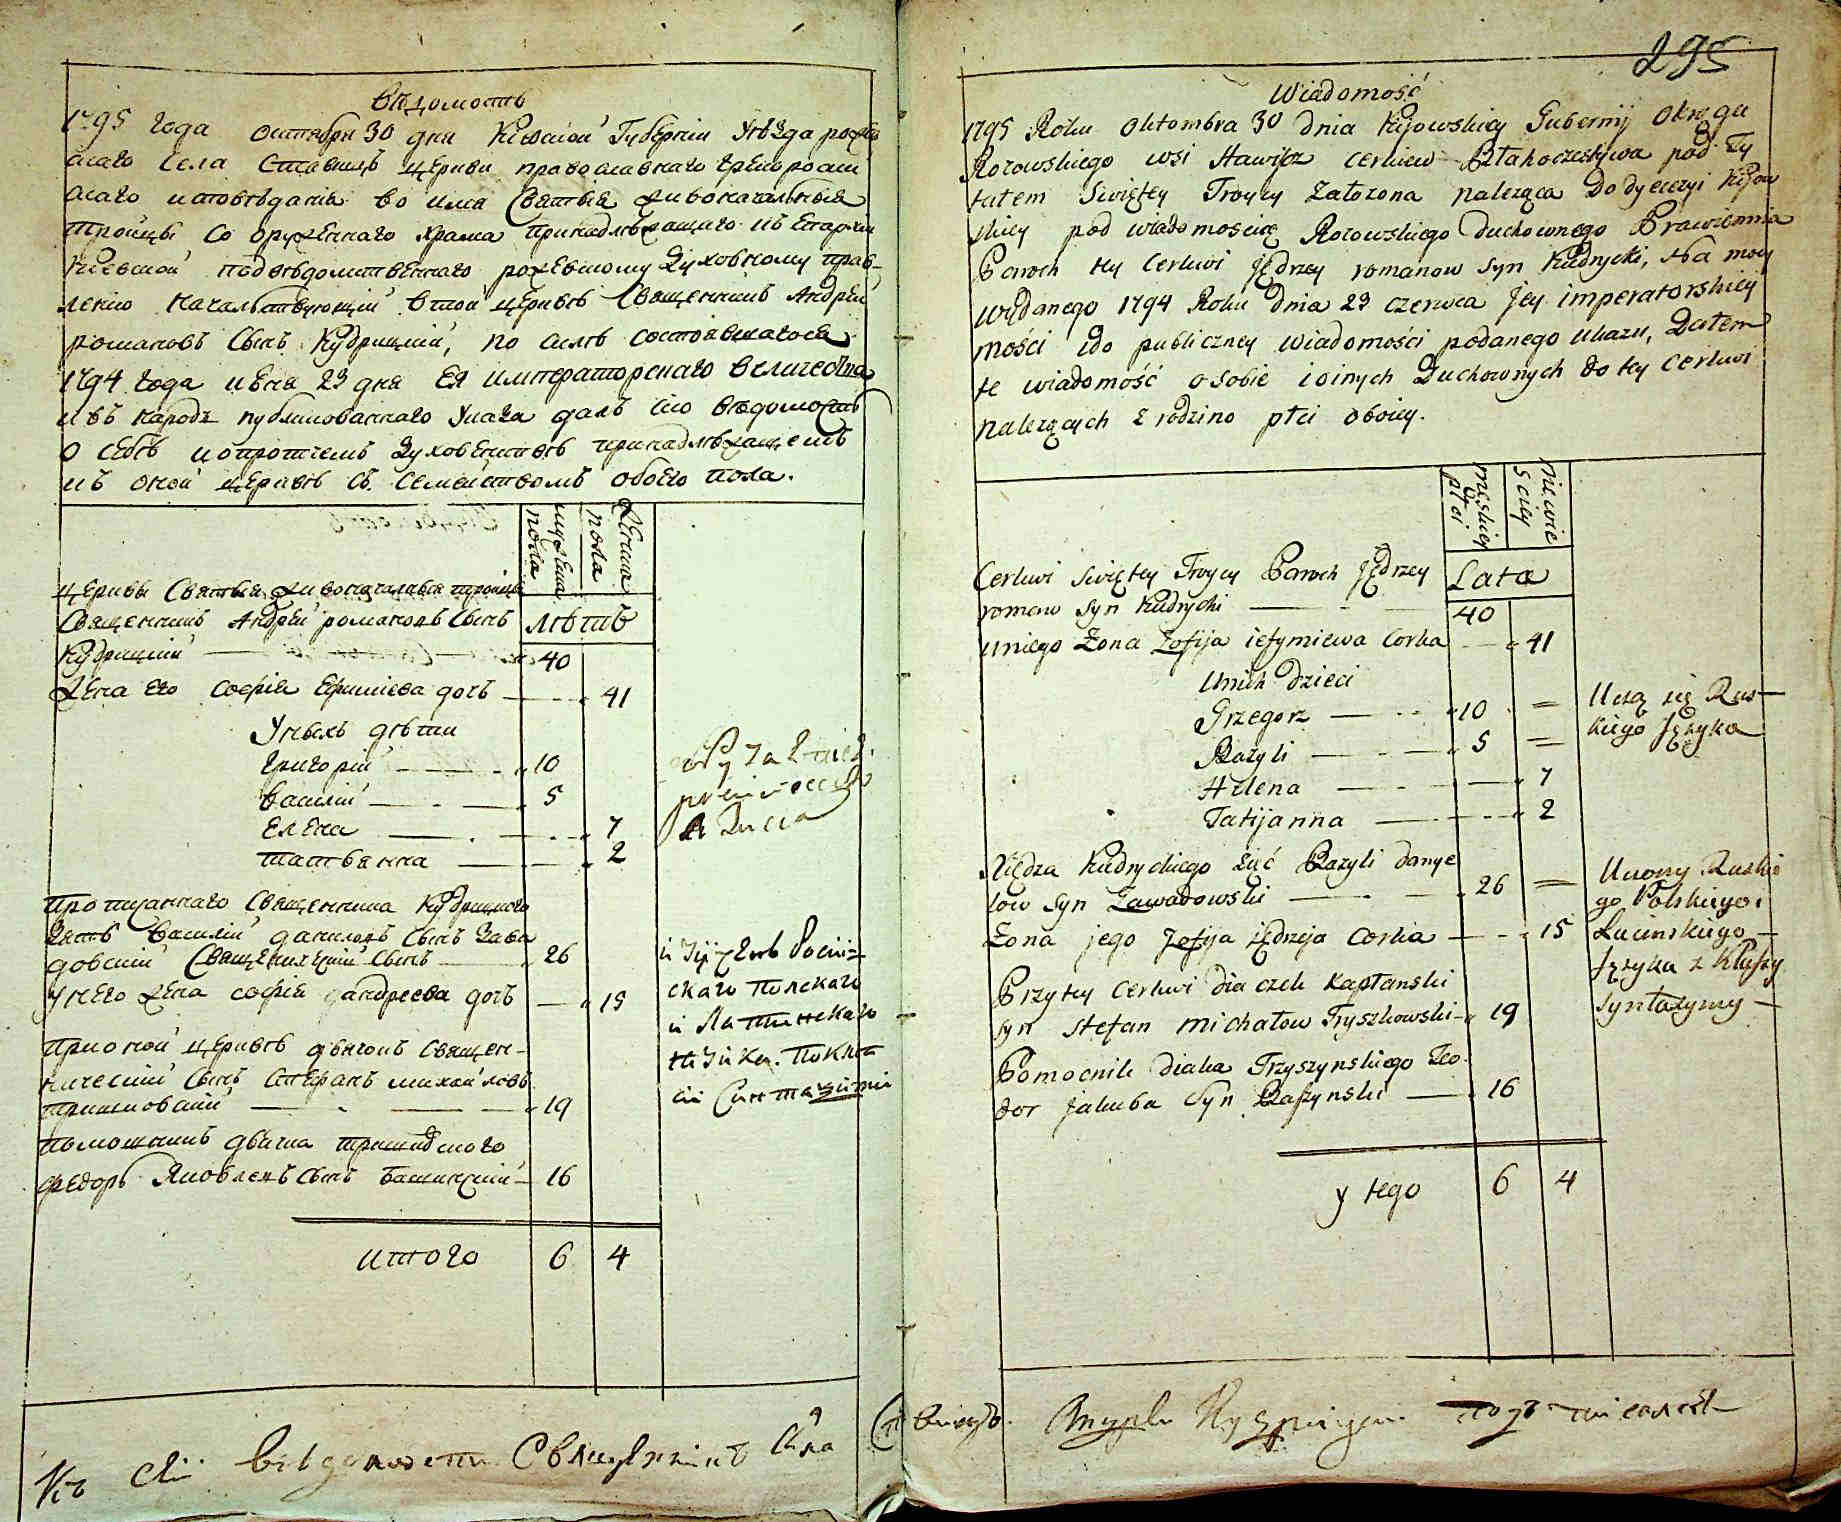 Вѣдомость
1795 года октября 30 дня Кіевской Губерніи Уѣзда рожев
скаго села Ставищъ церкви православнаго грекороссій
скаго исповѣданія во имя Святыя Живоначальныя
троицы сооруженнаго храма принадлѣжащаго къ Епархіи
Кіевской подвѣдомственнаго рожевскому Духовному прав-
ленію Начальствующій втой церквѣ Священникъ Андрей
романовъ Сынъ Кудрицкій, по силѣ состоявшагося
1794 года июня 23 дня Ея императорскаго величества
и въ народъ публикованнаго Указа далъ сію вѣдомость
О себѣ и опротчемъ Духовенствѣ принадлѣжащемъ
къ оной церквѣ съ семействомъ обоего пола.
мужеска пола
Женска пола
лѣтъ
Церквы Святыя живоначалныя троицы
Священникъ Андрей романовъ Сынъ
Кудрицкій 40
Жена его софія Ефимієва дочь 41
Унихъ дѣти
Григорій 10
Василій 5
Елена 7
татіянна 2
Протчаннаго Священника Кудрицкого
Зять Василій даниловъ Сынъ Зава
довскій Священическій Сынъ 26
Унего Жена софія андреева дочь 15
и Изученъ Россій-
скаго Полскаго
и Латинскаго
языка. Покла
сы Синтаѯими
При оной церквѣ дьячокъ Священ-
ническій Сынъ Стефанъ михайловъ
тришковскій 19
помошникъ дьячка тришковского
федоръ Яковлевъ Сынъ Башинскій 16
итого 6 4
Къ сей вѣдомости Священникъ Села
295
Wiadomość
1795 Roku Oktombra 30 dnia Kijowskiey Gubernij Okręgu
Rozowskiego wsi Stawiszcz cerkiew Błahoczestywa pod Ty
tułem Swiętey Troycy Załozona naleząca do dyecezyi Kijow
skiey pod wiadomoscią Rozowskiego duchownego Prawlennia
Paroch tey Cerkwi Jędrzey romanow syn Kudrycki, Na mocy
wydanego 1794 Roku dnia 23 Czerwca Jey imperatorskiey
mości ido publiczney wiadomości podanego ukazu, Dałem
te wiadomość o sobie i oinych Duchownych do tey Cerkwi
nalezących z rodzino płci oboiey.
męskiey płci
niewie sciey
Lata
Cerkwi Swiętey Troycy Paroch Jędrzey
romanow Syn Kudrycki 40
uniego Zona Zofija iefymiewa Corka 41
Unich dzieci
Grzegorz 10 =
Bazyli 5 =
Uczą się Rus-
kiego Języka
Helena 7
Tatijanna 2
Xiędza Kudryckiego zięć Bazyli danye
low Syn Zawadowski 26 =
Zona jego Zofija jędrzeja Corka 15
Uczony Ruskie
go Polskiego i
Łacinskiego
Języka z Klassy
Syntaxymy
Przy tey Cerkwi Diaczek Kapłanski
syn Stefan Michałow Tryszkowski 19
Pomocnik Diaka Trzyszynskiego Teo-
dor Jakuba Syn Baszynski 16
y tego 6 4
Андрѣй Кудрицкій подписался